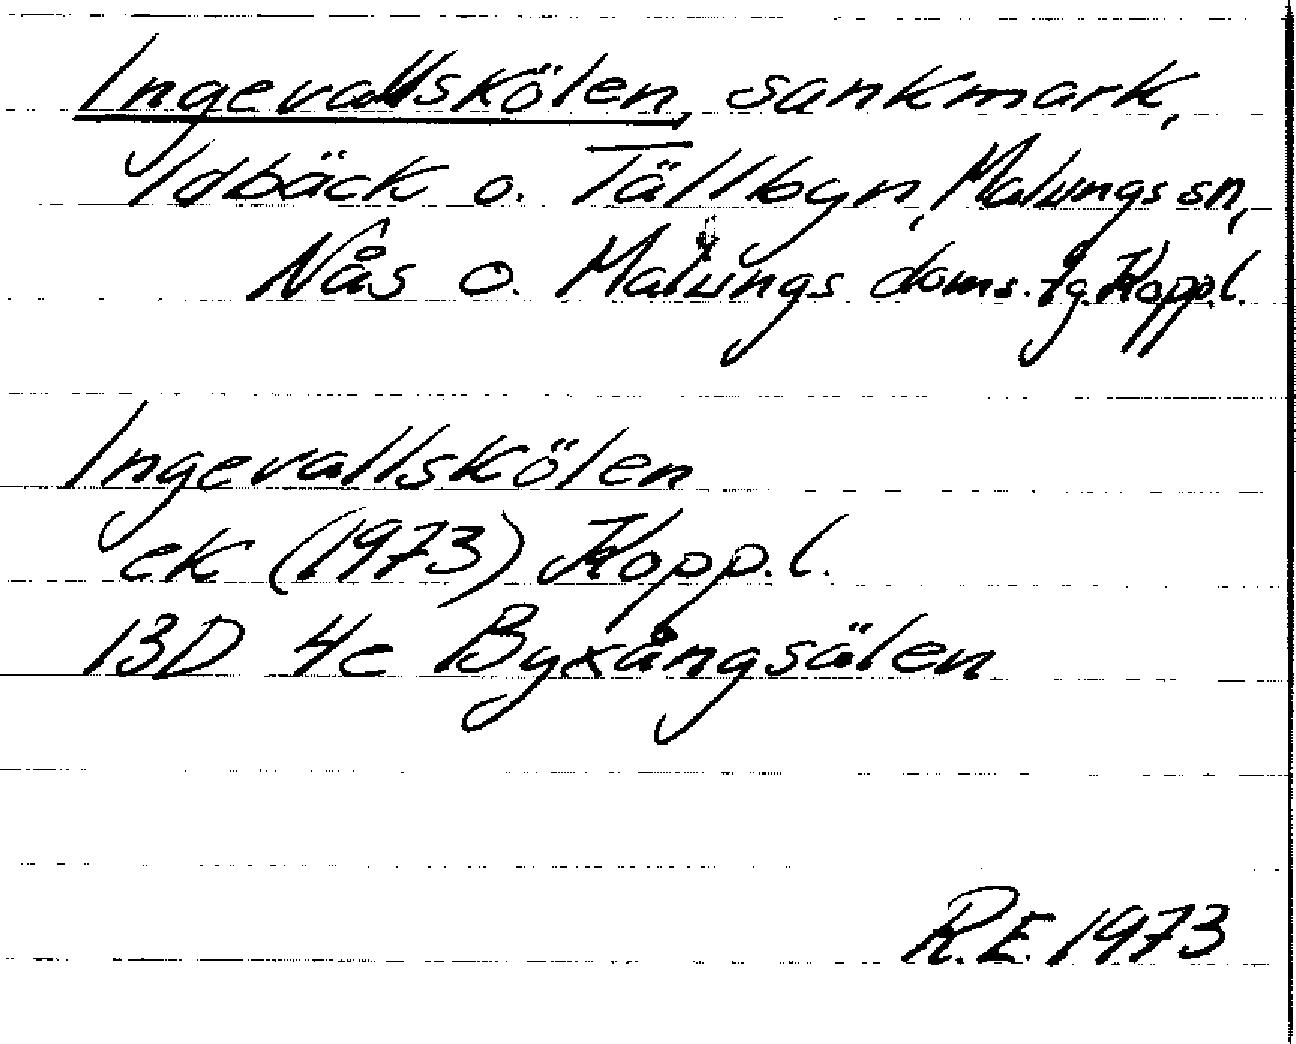 Ingevallskölen, sankmark,
Idbäck o. Tällbyn, Malungs sn,
Nås o. Malungs doms. tg. Kopp.l.
Ingevallskölen
ek (1973) Kopp. l.
13D 4c Byxångsälen
R.E. 1973